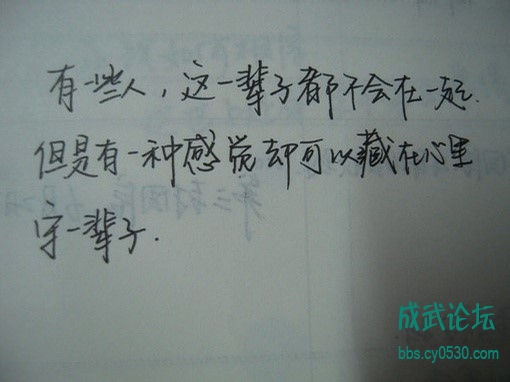 有一些人，这一辈子都不会在一起.
但是有一种感觉却可以藏在心里
守一辈子.
成武论坛
bbs.cy0530.com